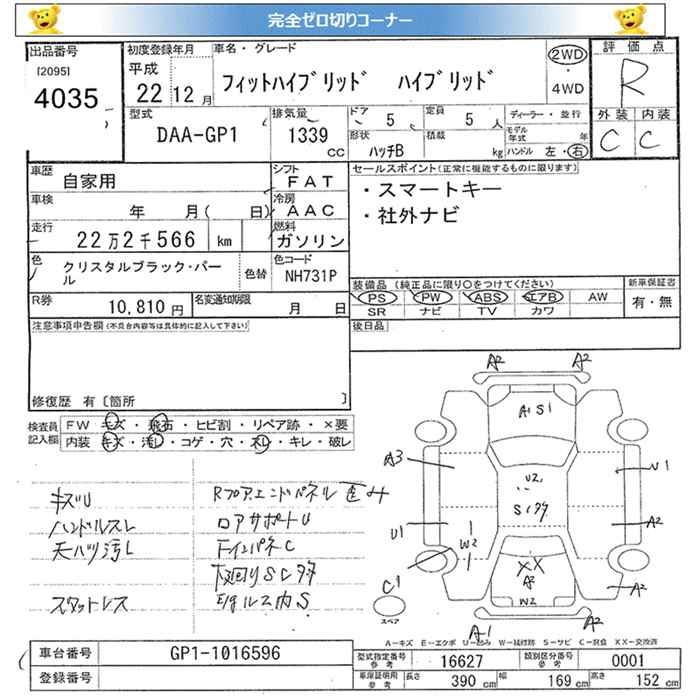 完全ゼロ切りコーナー
出品番号
[2095]
4035
初度登録年月
平成
22 12月
車名・グレード
フィットハイブリッド ハイブリッド
2WD
・
4WD
評価点
R
外装 内装
C C
型式
DAA-GP1
排気量
1339
CC
ドア
5
定員
5 人
形状
ハッチB
積載
kg
ディーラー・並行
モデル年式 年
ハンドル 左・右
車歴
自家用
シフト
FAT
車検
年 月( 日)
冷房
AAC
走行
22万2千566 km
燃料
ガソリン
色
クリスタルブラック・パール
色替
色コード
NH731P
R券
10,810円
名変通知期限
月 日
セールスポイント(正常に機能するものに限ります)
・スマートキー
・社外ナビ
装備品(純正品に限り○をつけてください)
PS PW ABS エアB AW
SR ナビ TV カワ
新車保証書
有・無
後日品
注意事項申告欄(不具合内容等は具体的に記入して下さい)
修復歴 有〔箇所 〕
検査員記入欄
FW キズ・飛石・ヒビ割・リペア跡・×要
内装 キズ・汚レ・コゲ・穴・スレ・キレ・破レ
キズU
ハンドルスレ
天ハリ汚レ
スタットレス
RフロアエンドパネルC歪み
ロアサポートU
下回りSC多
A2 A2
A1 S1
A3
U1
U2
S1多
U1
A2
W2
XX
A2
W2
C1
スペア
A2
A1
A2
A-キズ E-エクボ U-凹み W-補修跡 S-サビ C-腐食 XX-交換済
車台番号
GP1-1016596
登録番号
型式指定番号 参考
16627
類別区分番号 参考
0001
車庫証明用 参考
長さ 390 cm
幅 169 cm
高さ 152 cm